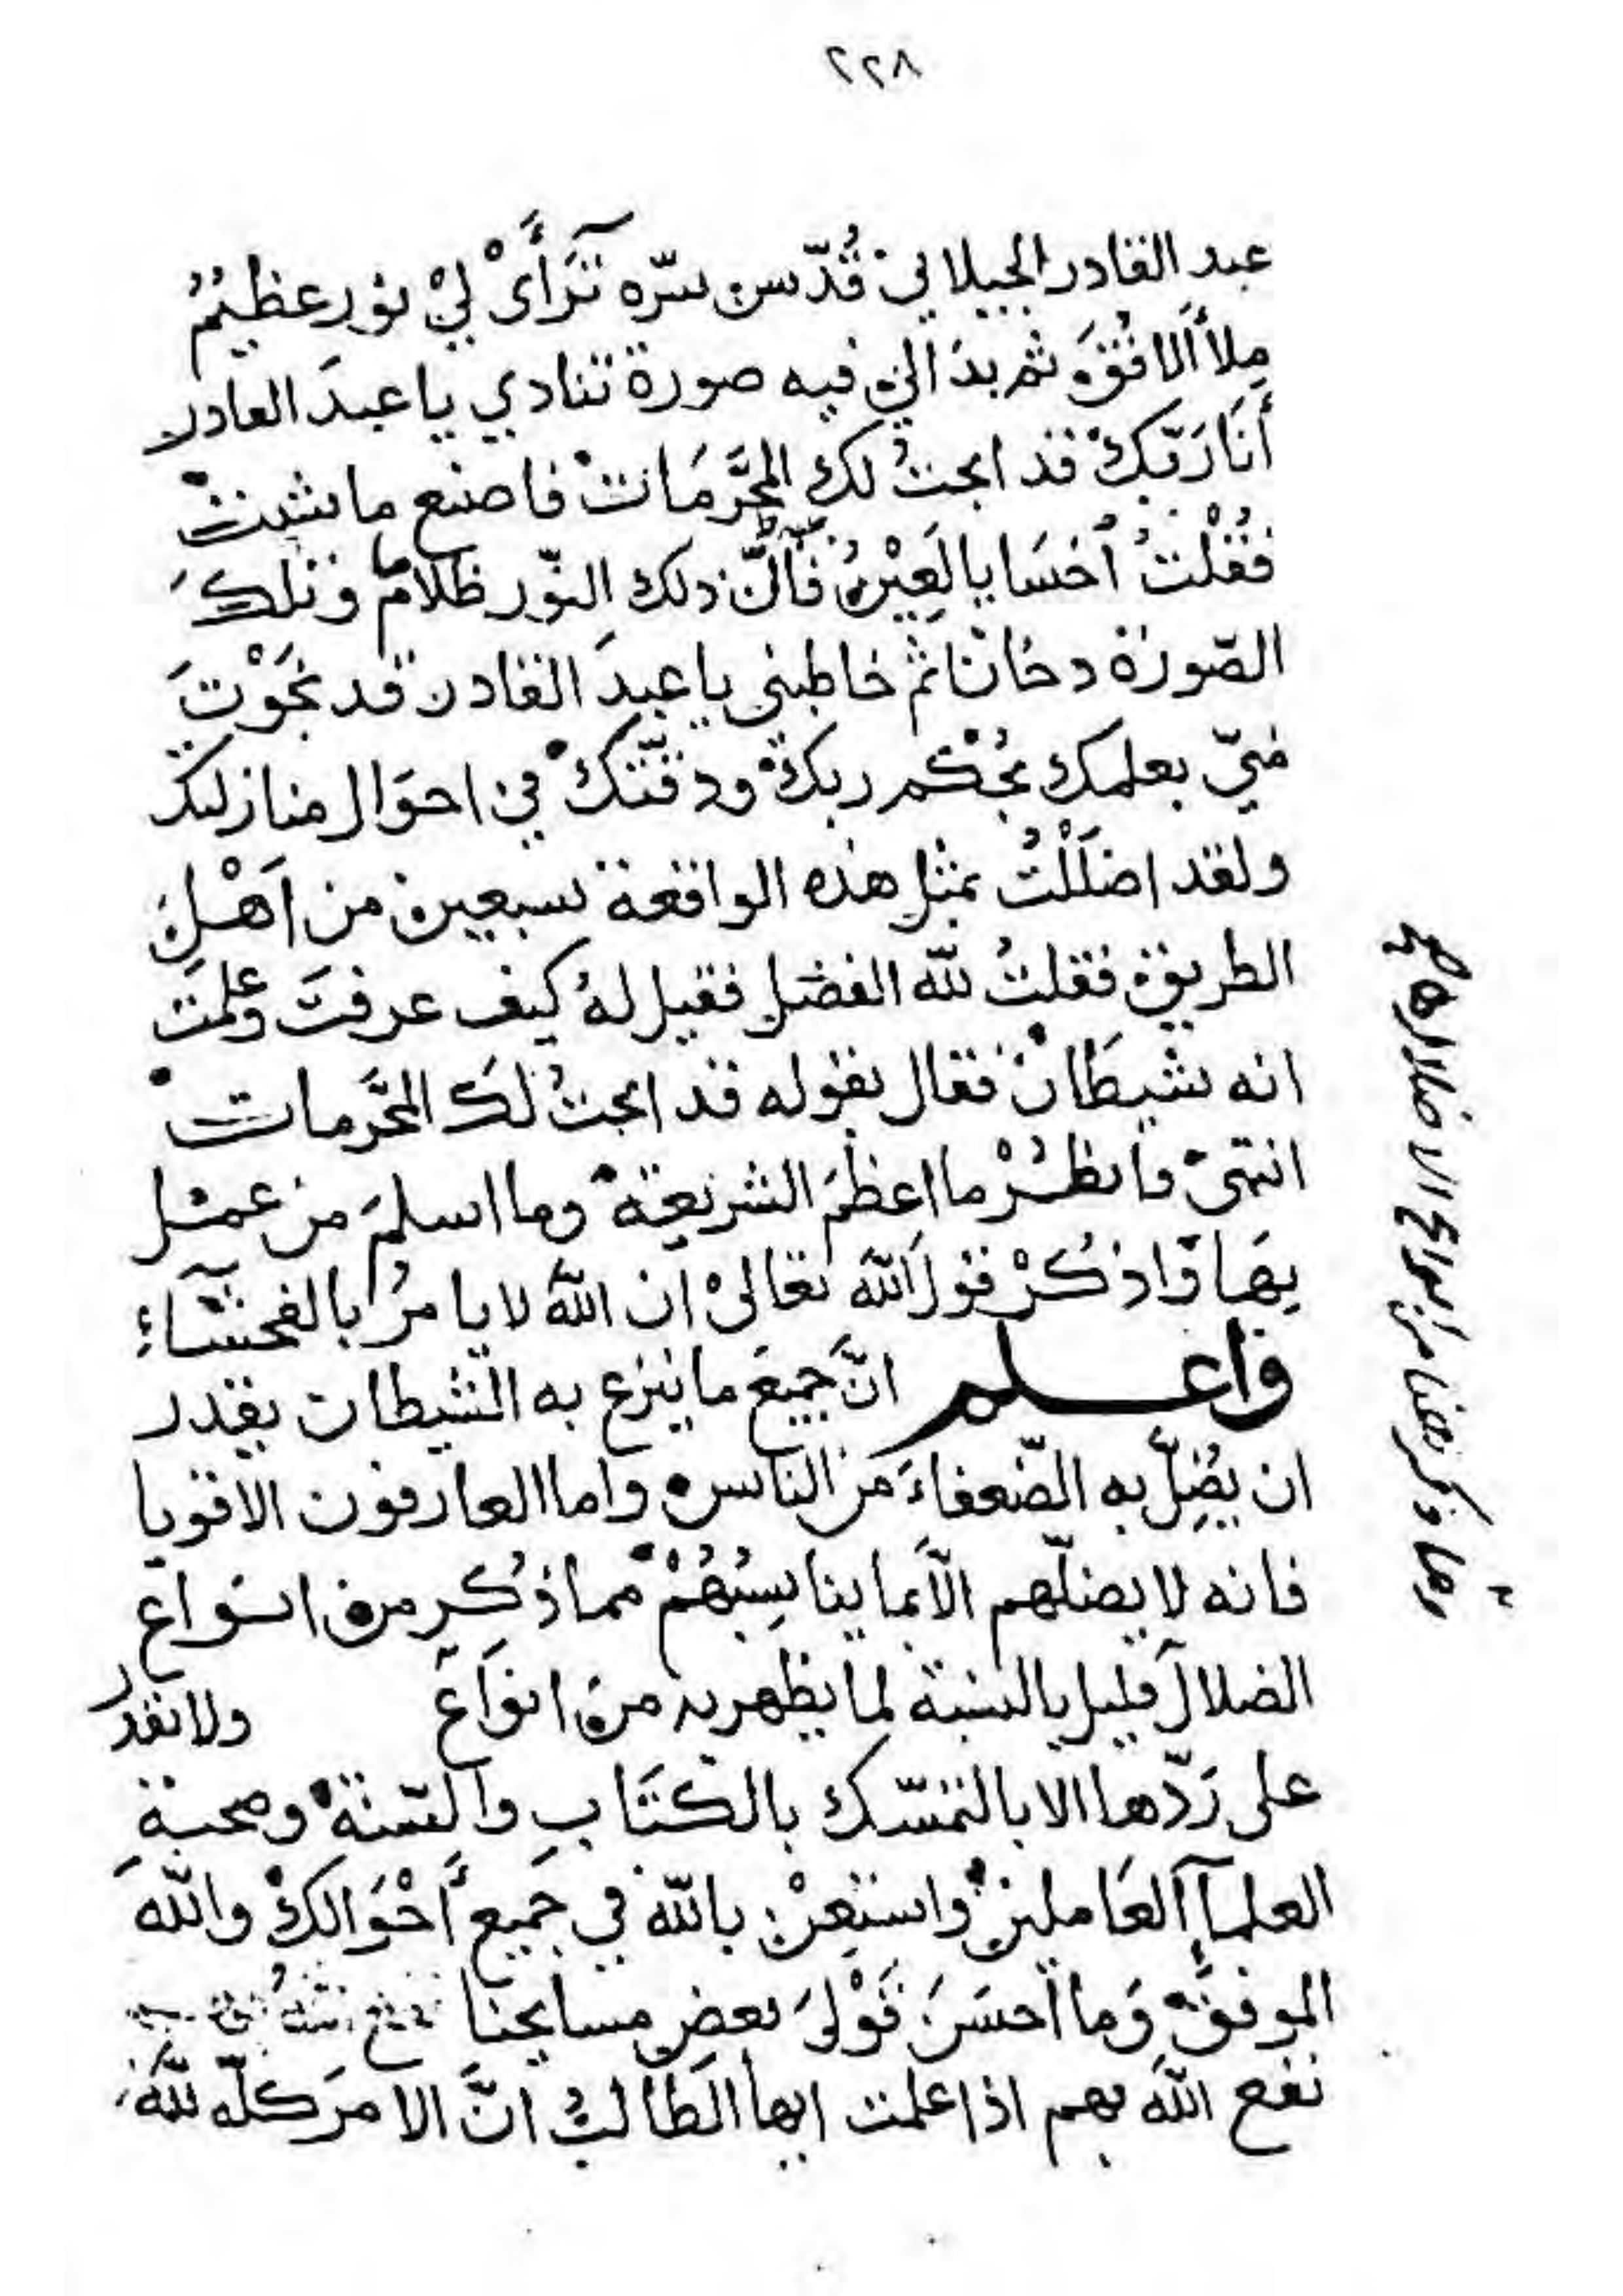 ٢٢٨
عبد القادر الجيلاني قُدّس سرّه تَرَآأَىْ لِيْ نور عظيمٌ
مِلأَ الافُقَ ثم بدَا لي فيه صورة تنادي يا عبدَ القادر
أَنَا رَبّكْ قد ابحتُ لك المحَرَّمَاتْ فاصنع ما شئت
فقُلْتُ اُخسَا يا لَعِيْنُ فَاِنَّ ذلك النّور ظلامٌ وتلكَ
الصّورة دخانا ثم خاطبني يا عبدَ القادر قد نجَوْتَ
منّي بعلمك بحُكْم ربكْ ودقّتكْ في احوَال منازلتك
ولقد اضلَلْتُ بمثلِ هذه الواقعة سبعين من اَهْلِ
الطريق فقلتُ لله الفضل فقيل لهُ كيف عرفتَ وعلمتَ
انه شيطَانْ فقال بقوله قد ابحتُ لكَ المحَرّمات
انتهىْ فانظُرْ ما اعظمَ الشريعَةْ وما اسلمَ من عمل
بهَا وَاذكُرْ قولَ اللّه تعالىْ ان اللّهَ لا يامرُ بالفحشآءِ
واعلم انَّ جميعَ ما ينزع به الشيطان يقدر
ان يُضِلّ به الضّعفاءَ من الناس واما العارفون الاقويا
فانه لا يضلّهم الاّ بما يناسِبُهُمْ مما ذُكِر من انواع
الضلال قليل بالنسبة لما يظهر به من انواع ولا تقدر
على رَدّها الا بالتمسّك بالكتَابِ والسّنةْ وصحبةِ
العلمآ العَاملينْ واستعِنْ باللّه في جميع أَحْوَالكْ واللّهَ
الموفقْ وَما احسَنَ قَوْلَ بعضِ مشايخنا
نفع اللّه بهم اذا علمت ايها الطَالبُ انَّ الامرَ كلّه للّه